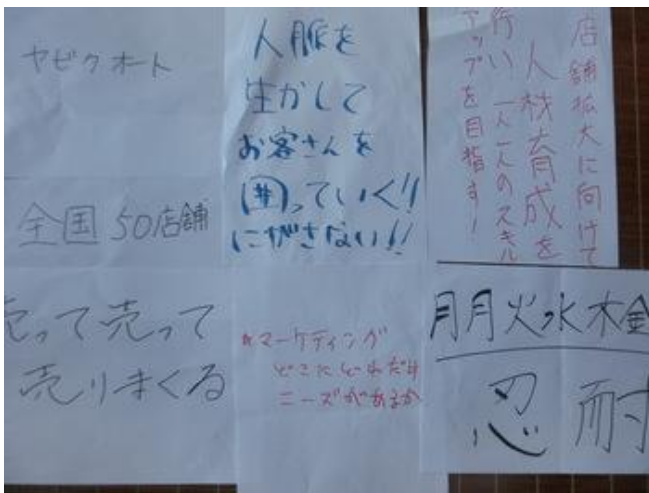 ヤビクオート
全国50店舗
売って売って
売りまくる
人脈を
生かして
お客さんを
囲っていく!!
にがさない!!
*マーケティング
どこにどれだけ
ニーズがあるか
店舗拡大に向けて
人材育成を
行い一人一人のスキル
アップを目指す!
月月火水木金
忍耐